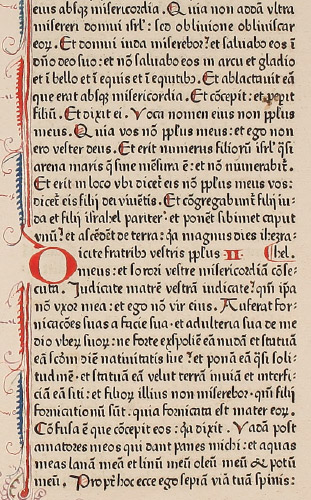 eius absq̃ misericordia. Quia non addã vltra
misereri domui isrl̃: sed obliuione obliuiscar
eoꝝ. Et domui iuda miserebor: et saluabo eos ĩ
dño deo suo: et nõ saluabo eos in arcu et gladio
et ĩ bello et ĩ equis et ĩ equitibꝰ. Et ablactauit eã
que erat absq̃ misericordia. Et cõcepit: et peperit
filiũ. Et dixit ei. Voca nomen eius non pp̃lus
meus. Quia vos nõ pp̃lus meus: et ego non
ero vester deus. Et erit numerus filioꝝ isrl̃ q̃si
arena maris q̃ sine mẽsura ẽ: et nõ numerabit̃.
Et erit in loco vbi dicet̃ eis nõ pp̃lus meus vos:
dicet̃ eis filij dei viuẽtis. Et cõgregabunt̃ filij iu-
da et filij israhel pariter: et ponẽt sibimet caput
vnũ: et ascẽdẽt de terra: q̃a magnus dies ihezra-
Dicite fratribꝰ vestris pp̃lus ·II· hel.
meus: et sorori vestre misericordiã cõse-
cuta. Iudicate matrẽ vestrã iudicate: qm̃ ip̃a
nõ vxor mea: et ego nõ vir eius. Auferat for-
nicacões suas a facie sua· et adulteria sua de me
dio vberꝝ suoꝝ: ne forte expoliẽ eã nudã et statuã
eã scd̃m diẽ natiuitatis sue: et ponã eã q̃si soli-
tudinẽ· et statuã eã velut terrã inuiã et interfi-
ciã eã siti: et filioꝝ illius non miserebor· qm̃ filij
fornicationũ sũt· quia fornicata est mater eoꝝ.
Cõfusa ẽ que cõcepit eos: q̃a dixit. Vadã post
amatores meos qui dant panes michi: et aquas
meas lanã meã et linũ meũ oleũ meũ et potũ
meũ. Propt̃ hoc ecce ego sepiã viã tuã spinis: